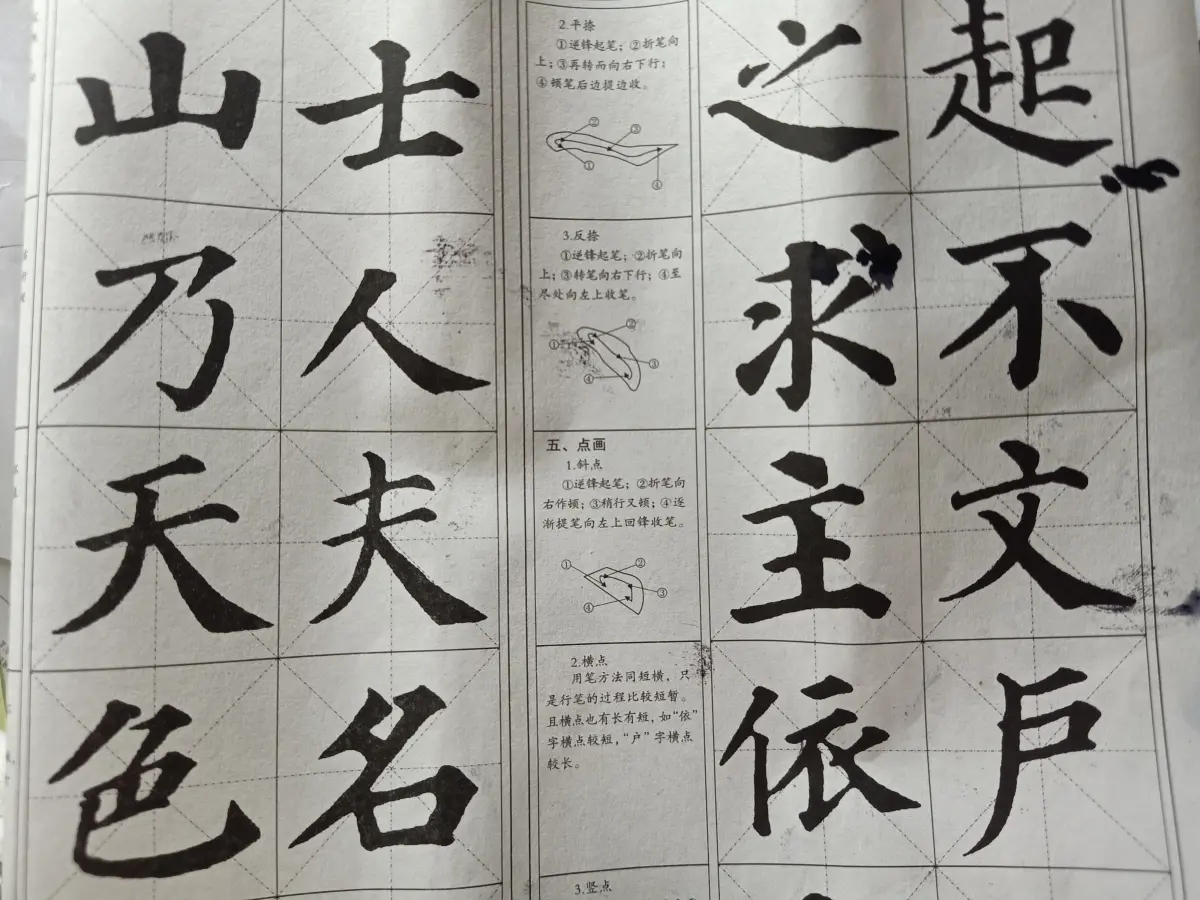 山 士
乃 人
天 夫
色 名
2.平捺
①逆锋起笔；②折笔向
上；③再转而向右下行；
④顿笔后边提边收。
②
③
①
④
3.反捺
①逆锋起笔；②折笔向
上；③转笔向右下行；④至
尽处向左上收笔。
②
①
③
④
五、点画
1.斜点
①逆锋起笔；②折笔向
右作顿；③稍行又顿；④逐
渐提笔向左上回锋收笔。
①
②
③
④
2.横点
用笔方法同短横，只
是行笔的过程比较短暂。
且横点也有长有短，如“依”
字横点较短，“户”字横点
较长。
3.竖点
之 起
求 不
主 文
依 户